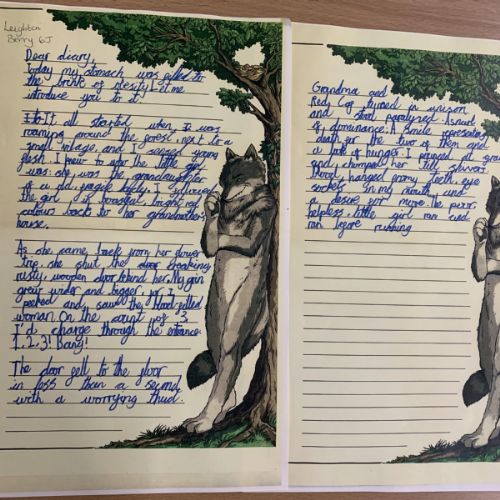 Leighton
Berry 6J
Dear diary,
Today my stomach was filled to
the brink of obesity. Let me
introduce you to it.
It all started when I was
roaming around the forest next to a
small village, and I sensed young
flesh. I knew to
was: she was the granddaughter
of a old, fragile lady. I followed
the girl in boastful, bright red
colours back to her grandmothers
house.
As she came back from her flower
trip, she shut the door breaking
rusty, wooden door behind her. My grin
grew wider and bigger, for I
peeked and saw the blood-filled
woman. On the count of 3
I'd charge through the entrance.
1, 2, 3! Bang!
The door fell to the floor
in less than a second
with a worrying thud.
Grandma and
Red Cap turned in unison
and stood paralysed. A snarl
of dominance. A smile representing
death for the two of them and
a look of hunger. I pounced at gran
and chomped her. Red
blood hanged from my teeth, eye
sockets in my mouth and
a desire for more. The poor,
helpless little girl ran and
ran before running